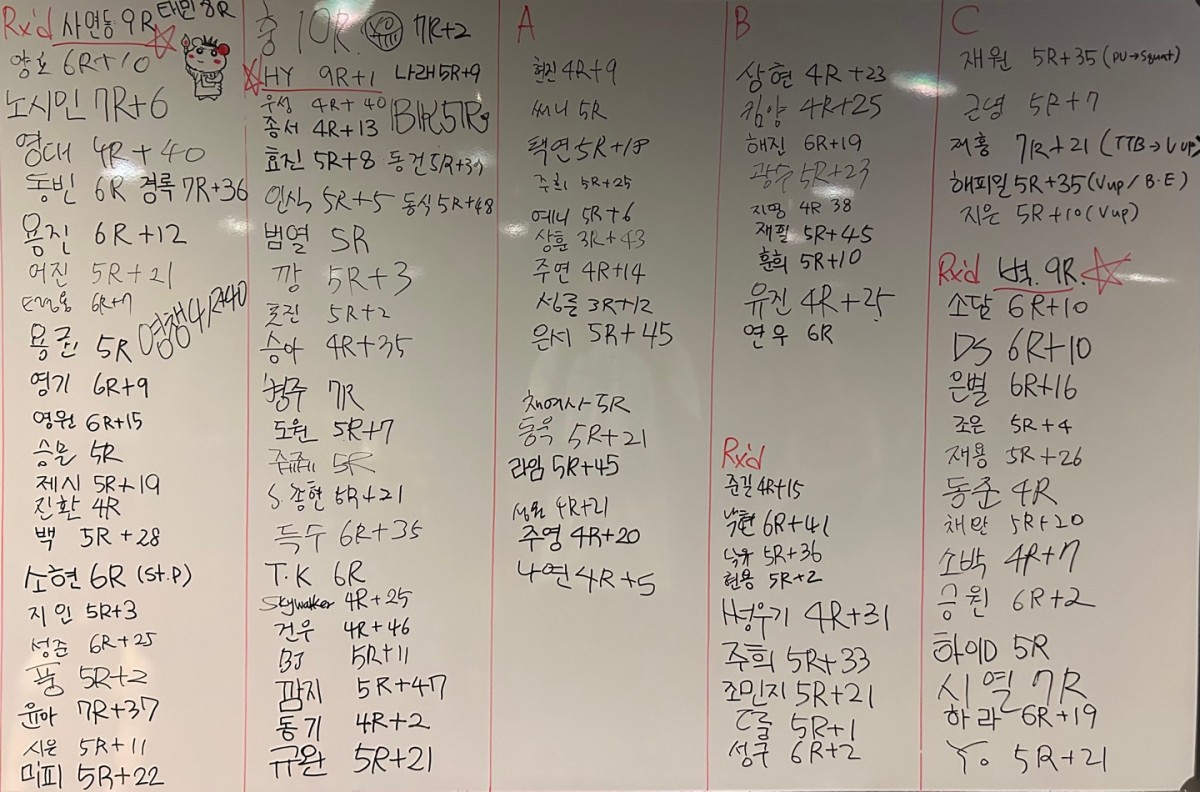 Rx'd 사연동 9R 태민 8R
양호 6R+10
노시인 7R+6
영대 4R+40
동빈 6R 경록 7R+36
용진 6R+12
어진 5R+21
6R+7
용근 5R 영쟁 4R+40
영기 6R+9
영원 6R+15
승물 5R
제시 5R+19
진환 4R
백 5R+28
소현 6R (St.P)
지인 5R+3
성준 6R+25
풍 5R+2
윤아 7R+37
시은 5R+11
미피 5R+22
충 10R. 7R+2
HY 9R+1 나래 5R+9
우성 4R+40 BK 5R
종서 4R+13
효진 5R+8 동건 5R+31
인식 5R+5 동식 5R+48
범열 5R
깡 5R+3
훗진 5R+2
승아 4R+35
형주 7R
도원 5R+7
쥬쥬 5R
S.종현 5R+21
득수 6R+35
T.K 6R
Skywalker 4R+25
건우 4R+46
BJ 5R+11
깜지 5R+47
동기 4R+2
규완 5R+21
A
현진 4R+9
써니 5R
택연 5R+18
주희 5R+25
예니 5R+6
상훈 3R+43
주연 4R+14
성률 3R+12
은서 5R+45
채여사 5R
동욱 5R+21
라임 5R+45
성원 4R+21
주영 4R+20
나연 4R+5
B
상현 4R+23
킴양 4R+25
해진 6R+19
광수 5R+23
지명 4R 38
재필 5R+45
훈희 5R+10
유진 4R+25
연우 6R
Rx'd
준길 4R+15
낙현 6R+41
낙유 5R+36
현용 5R+2
H영우기 4R+31
주희 5R+33
조민지 5R+21
C를 5R+1
성구 6R+2
C
재원 5R+35 (PU→Squat)
근녕 5R+7
재홍 7R+21 (TTB→V up)
해피일 5R+35 (Vup / B.E)
지은 5R+10 (Vup)
Rx'd 벽. 9R.
소담 6R+10
DS 6R+10
은별 6R+16
조은 5R+4
재용 5R+26
동준 4R
채만 5R+20
소박 4R+7
승원 6R+2
하이D 5R
시열 7R
하라 6R+19
Yo 5R+21